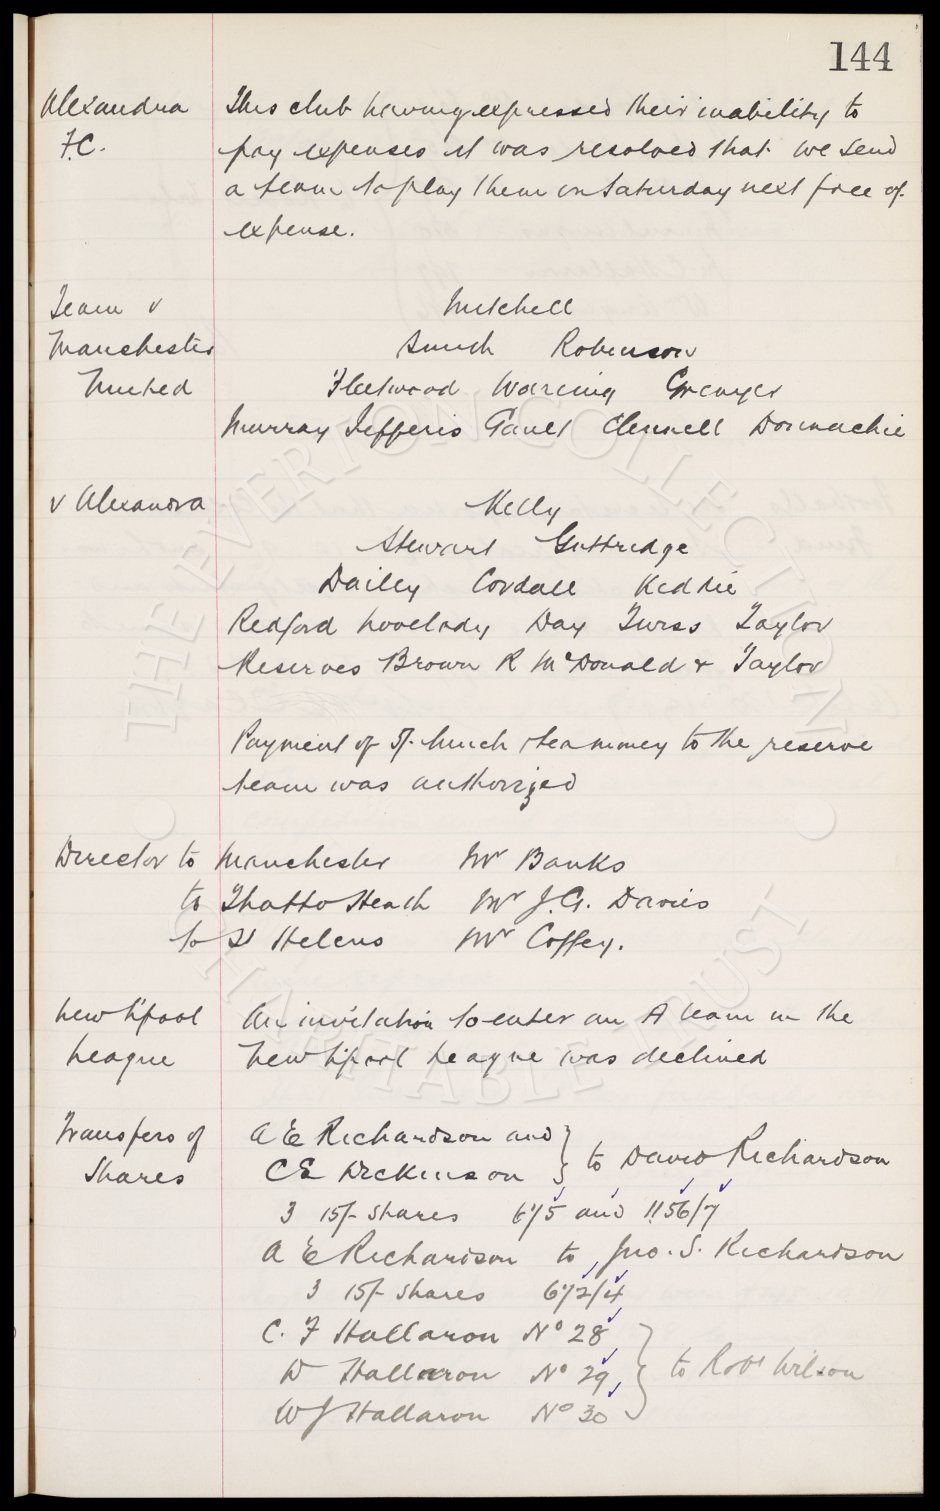 144
Alexandra This club having expressed their inability to
F.C. pay expenses it was resolved that we send
a team to play them on Saturday next free of
expense.
Team v Mitchell
Manchester Smith Robinson
United Fleetwood Wareing Grenyer
Murray Jefferis Gault Clennell Donnachie
v Alexandra Kelly
Stewart Guttridge
Dailey Cordall Keddie
Redford Lovelady Day Twiss Taylor
Reserves Brown R McDonald & Taylor
Payment of 5/- lunch & tea money to the reserve
team was authorized
Director to Manchester Mr Banks
to Thatto Heath Mr J.G. Davies
to St Helens Mr Coffey.
New L'pool An invitation to enter an A team in the
League New L'pool League was declined
Transfers of A E Richardson and
Shares C E Dickinson } to David Richardson
3 15/- shares 675 and 1156/7
A E Richardson to Jno. S. Richardson
3 15/- shares 672/4
C. F Hallaron No 28
D Hallaron No 29 } to Robt Wilson
W J Hallaron No 30
THE EVERTON COLLECTION
CHARITABLE TRUST